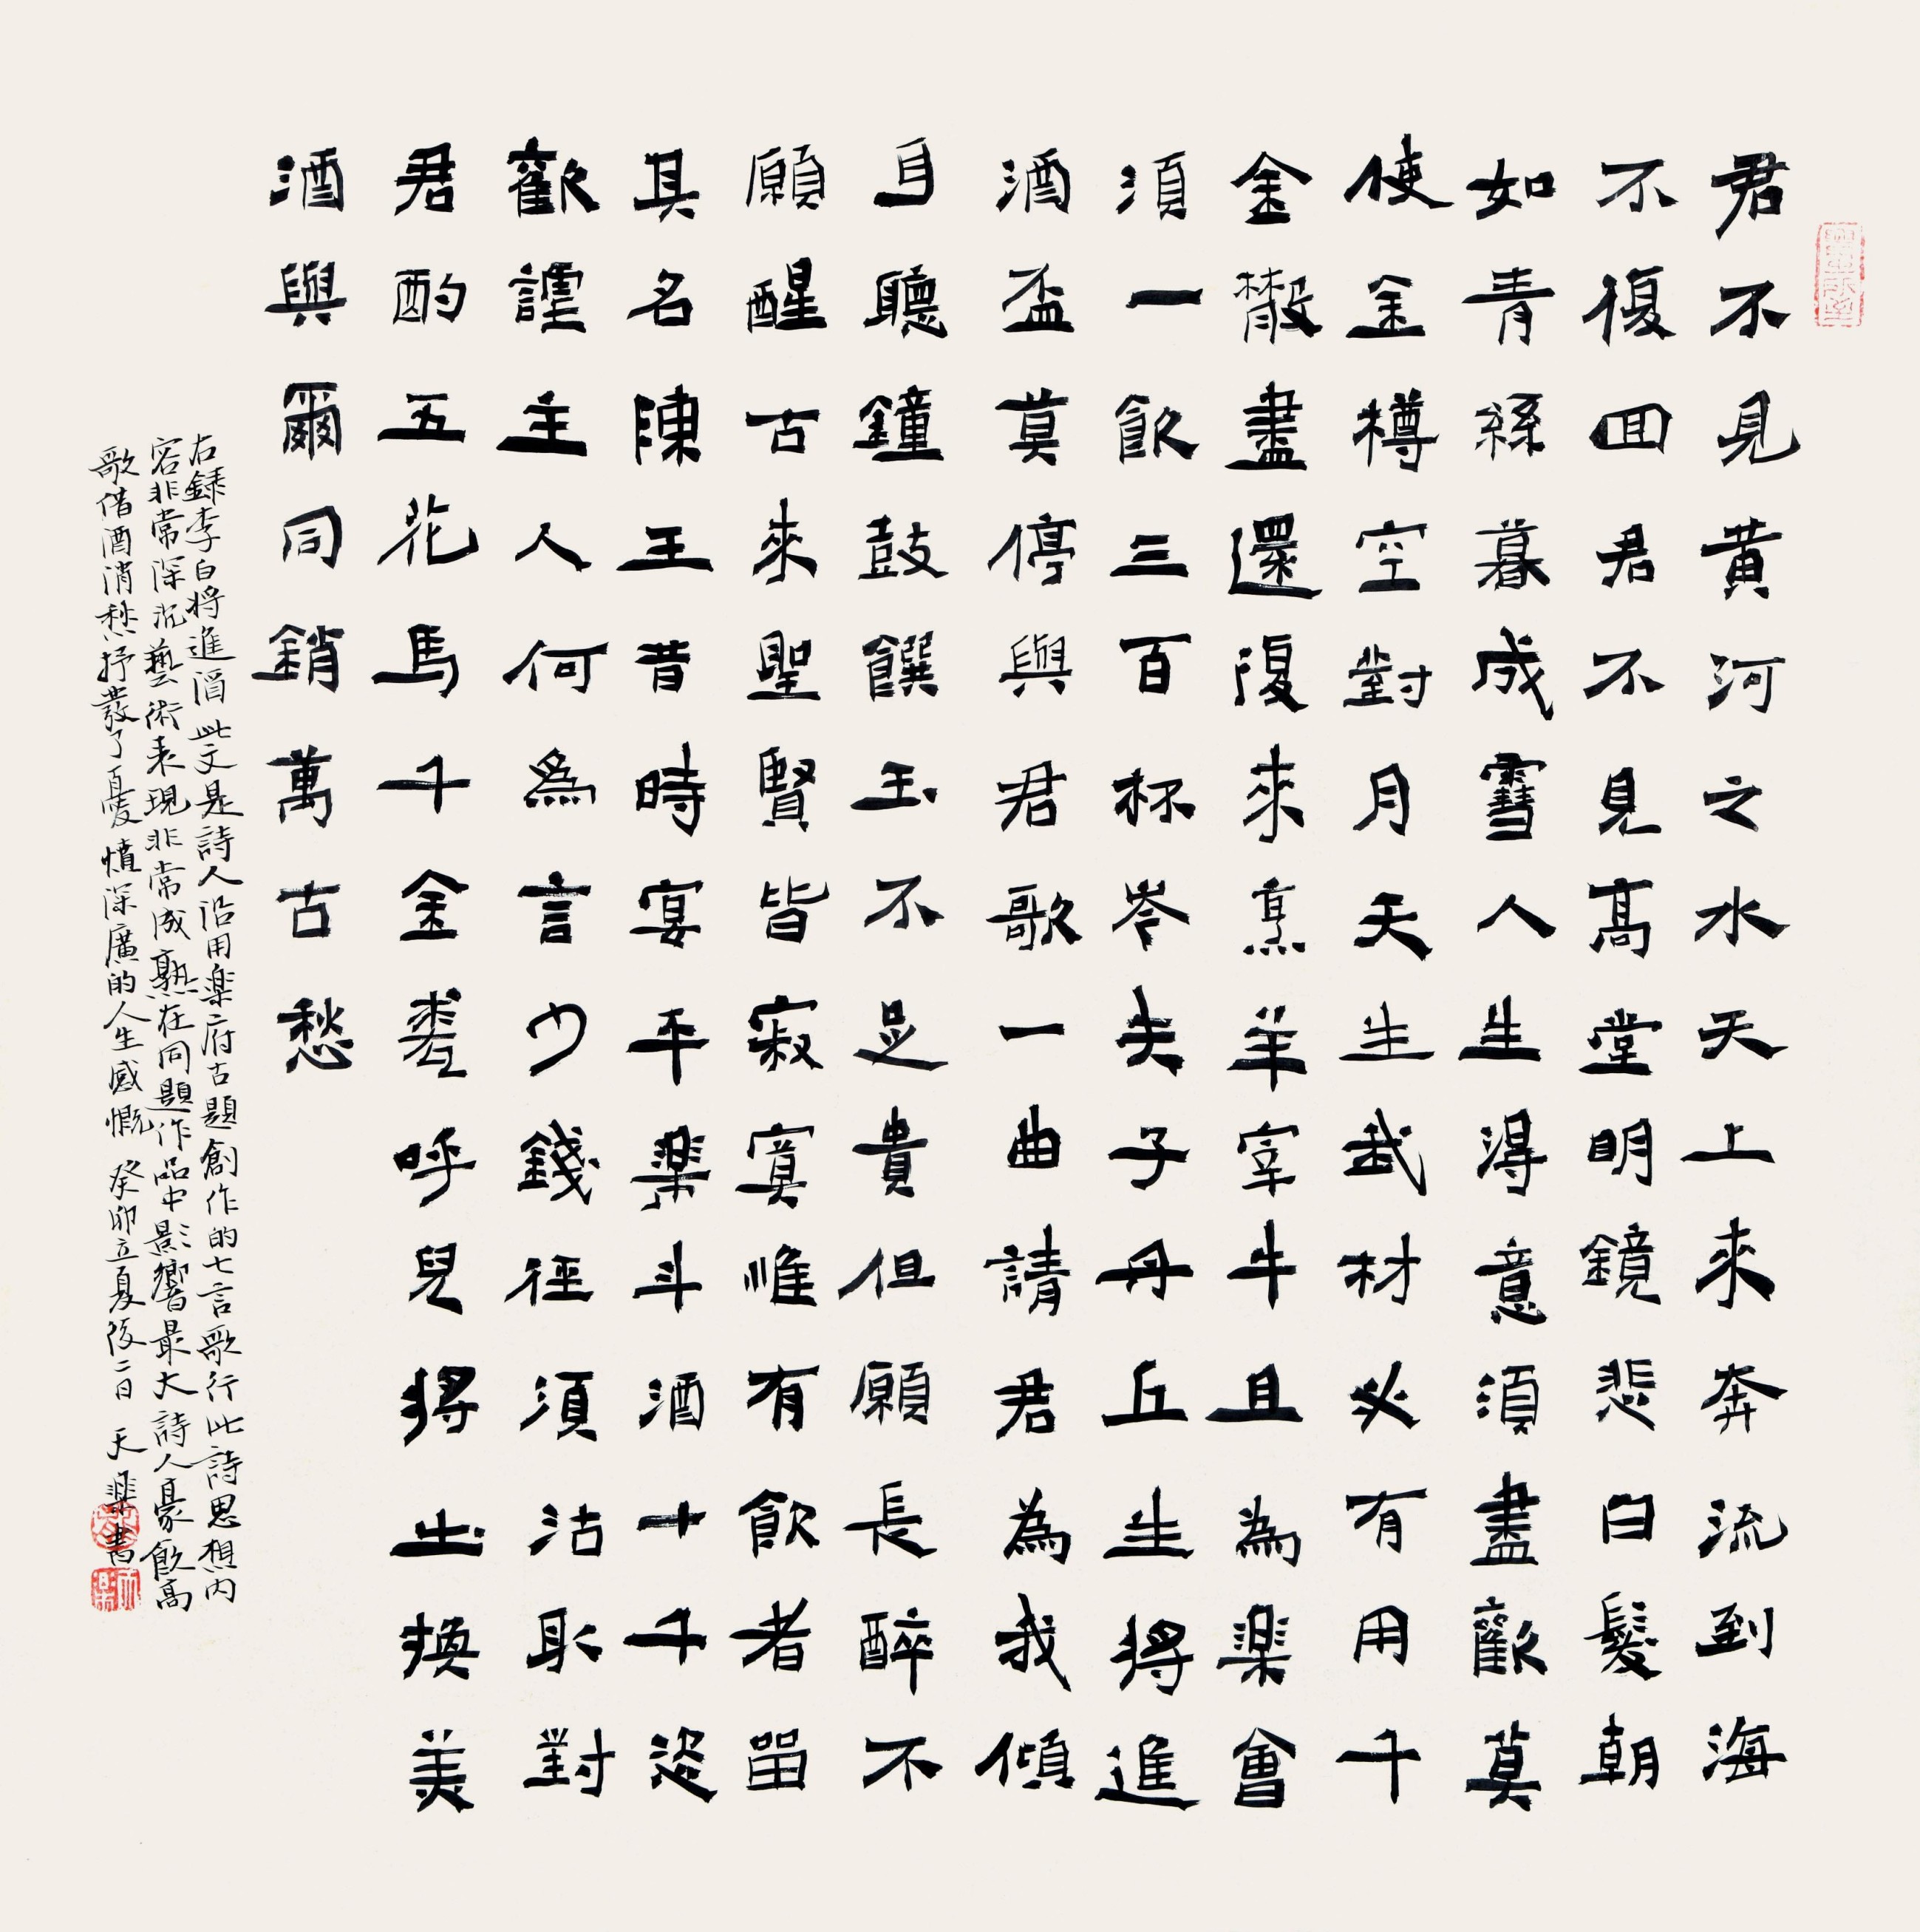 君不見黃河之水天上來奔流到海
不復回君不見高堂明鏡悲白髮朝
如青絲暮成雪人生得意須盡歡莫
使金樽空對月天生我材必有用千
金散盡還復來烹羊宰牛且為楽會
須一飲三百杯岑夫子丹丘生將進
酒盃莫停與君歌一曲請君為我傾
耳聽鐘鼓饌玉不足貴但願長醉不
願醒古來聖賢皆寂寞惟有飲者留
其名陳王昔時宴平楽斗酒十千恣
歡謔主人何為言少錢徑須沽取對
君酌五花馬千金裘呼兒將出換美
酒與爾同銷萬古愁
右録李白將進酒此文是詩人沿用楽府古題創作的七言歌行此詩思想内
容非常深沉藝術表現非常成熟在同題作品中影響最大詩人豪飲高
歌借酒消愁抒發了憂憤深廣的人生感慨 癸卯立夏後二日 天楽書